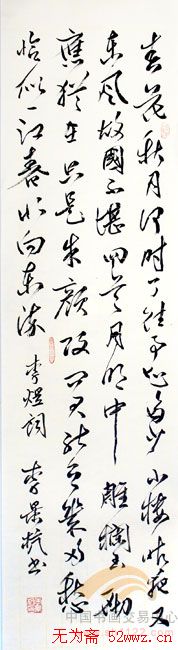 春花秋月何时了往事知多少小楼昨夜又
东风故國不堪回首月明中雕欄玉砌
應猶在只是朱颜改问君能有幾多愁
恰似一江春水向东流 李煜词 李景杭书
中国书画交易中心
无为斋 52wwz.cn